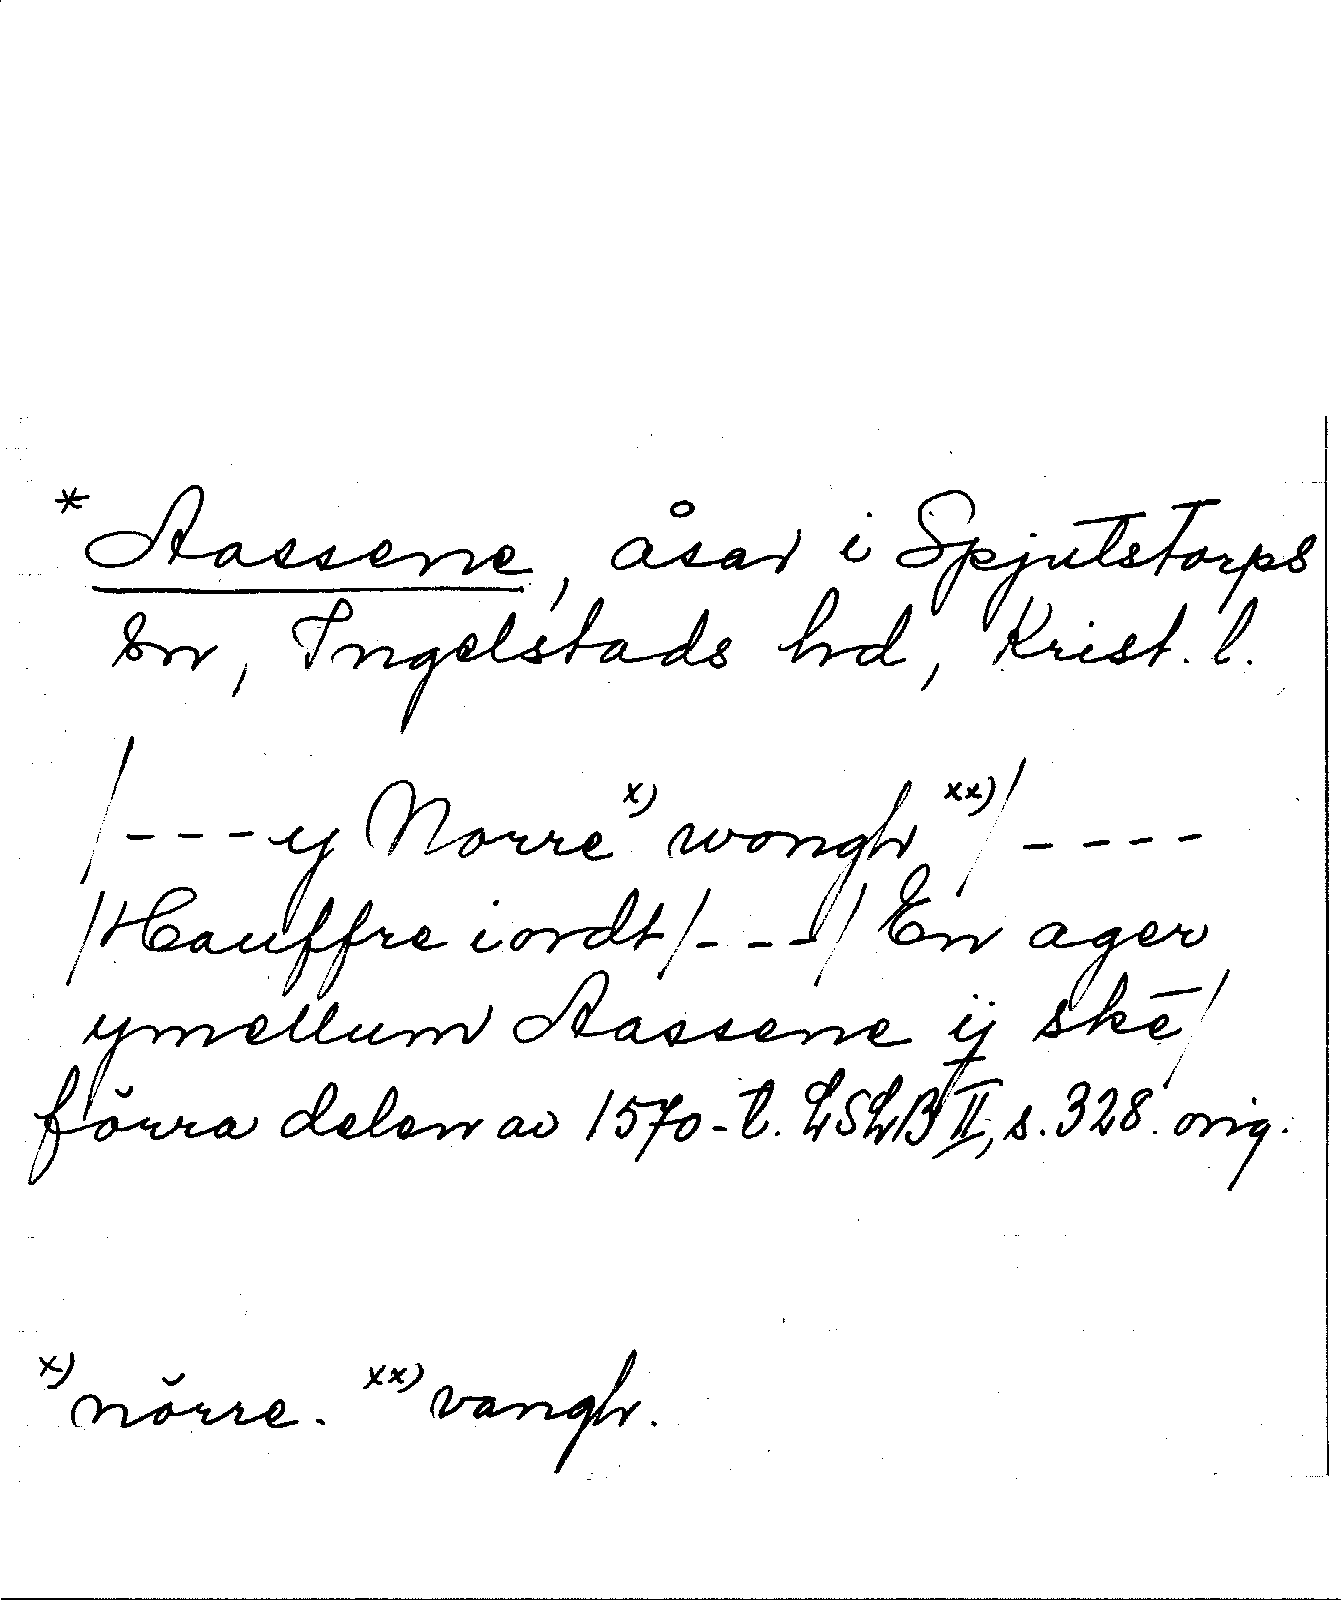 * Aassene, åsar i Spjutstorps
sn, Ingelstads hd, Krist. l.
/---y Norre x) wongh xx)/----
/Hauffre iordt/---/En ager
ymellum Aassene ij skē/
förra delen av 1570-t. LSLB II, s. 328 orig.
x) nörre. xx) vangh.